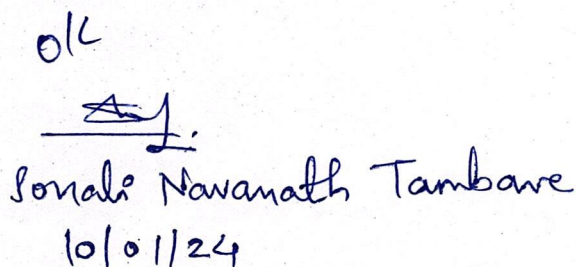 OK
Sonali Navanath Tambave
10/01/24